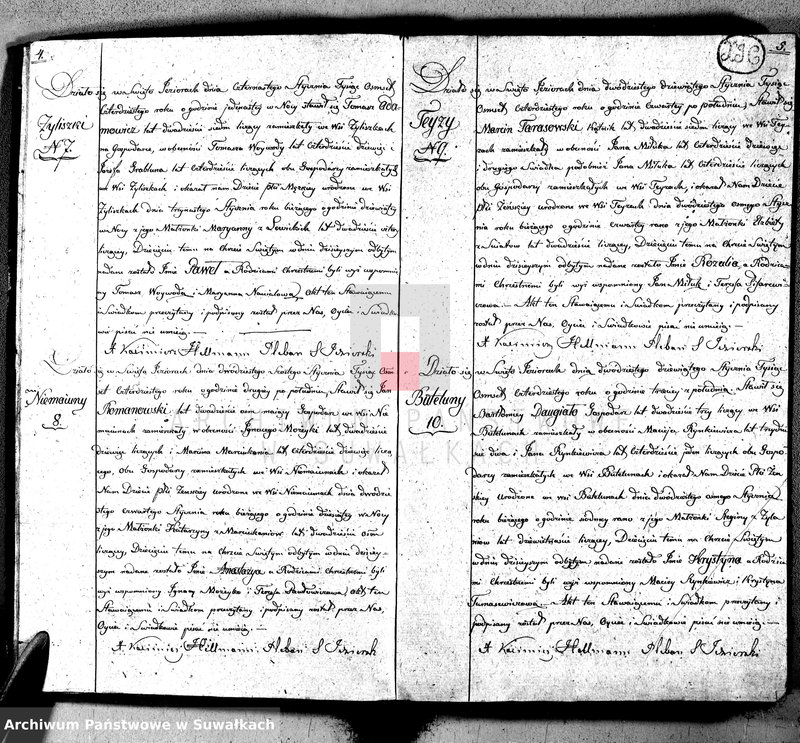 4.
Żyliszki
N 7.
Działo się w Święto Jeziorach dnia czternastego Stycznia Tysiąc Osmset
czterdziestego roku o godzinie jedenastej w Nocy stawił się Tomasz Ada
mowicz lat dwadzieścia siedm liczący zamieszkały we Wsi Żyliszkach
na Gospodarce, w obecności Tomasza Woywody lat czterdzieści dziewięć i
Józefa Grabluna lat czterdzieści liczących obu Gospodarzy zamieszkałych
we Wsi Żyliszkach i okazał nam Dziecie płci Męzkiey urodzone we Wsi
Żyliszkach dnia trzynastego Stycznia roku bieżącego o godzinie dziewiątej
w Nocy z jego Małżonki Maryanny z lat dwadzieścia
liczącey, Dziecięciu temu na Chrzcie Świętym w dniu dzisieyszym odbytym
nadane zostało Imie Paweł a Rodzicami Chrzestnemi byli wyż wspomnio
ny Tomasz Woywoda i Maryanna Akt ten Stawaiącemu
i Świadkom przeczytany i podpisany został przez Nas, Oyciec i Świadko
wie pisać nie umieią. —
X Kazimierz Hollmann Pleban S Jeziorski
Niemaiuny
8.
Działo się w Święto Jeziorach dnia dwudziestego szóstego Stycznia Tysiąc Osm
set czterdziestego roku o godzinie drugiey po południu, Stawił się Jan
Romanowski lat dwadzieścia osm maiący Gospodarz we Wsi Nie
maiunach zamieszkały w obecności Ignacego Możeyki lat dwadzieścia
dziewięć liczących i Marcina Marcinkania lat czterdzieści dziewięć liczą
cego, Obu Gospodarzy zamieszkałych we Wsi Niemaiunach i okazał
Nam Dziecie płci Żeńskiey urodzone we Wsi Niemaiunach dnia dwudzie
stego czwartego Stycznia roku bieżącego o godzinie dziesiątey w Nocy
z jego Małżonki Katarzyny z Marcinkaniów lat dwadzieścia osm
liczącey, Dziecięciu temu na Chrzcie Świętym odbytym w dniu dzisiey
szym nadane zostało Imie Anastazya a Rodzicami Chrzestnemi byli
wyż wspomniony Ignacy Możeyko i Teressa Akt ten
Stawaiącemu i Świadkom przeczytany i podpisany został przez Nas,
Oyciec i Świadkowie pisać nie umieią. —
X Kazimierz Hollmann Pleban S Jeziorski
5.
Teyzy
N 9.
Działo się w Święto Jeziorach dnia dwudziestego dziewiątego Stycznia Tysiąc
Osmset czterdziestego roku o godzinie czwartey po południu, Stawił się
Marcin Tarasewski lat dwadzieścia siedm liczący we Wsi Tey
zach zamieszkały w obecności Jana Miluka lat czterdzieści
i drugiego Świadka podobnież Jana Miluka, lat czterdzieści liczących
obu Gospodarzy zamieszkałych we Wsi Teyzach, i okazał Nam Dziecie
Płci Żeńskiey urodzone we Wsi Teyzach dnia dwudziestego osmego Stycz
nia roku bieżącego o godzinie czwartey rano z jego Małżonki Elżbiety
z lat dwadzieścia liczącey, Dziecięciu temu na Chrzcie Świętym
w dniu dzisieyszym odbytym nadane zostało Imie Rozalia, a Rodzica
mi Chrzestnemi byli wyż wspomniony Jan Miluk i Teressa Pisarcu
czowa. — Akt ten Stawaiącemu i Świadkom przeczytany i podpisany
został przez Nas, Oyciec i Świadkowie pisać nie umieią. —
X Kazimierz Hollmann Pleban S Jeziorski
Buteluny
10.
Działo się w Święto Jeziorach dnia dwudziestego dziewiątego Stycznia Tysiąc
Osmset czterdziestego roku o godzinie trzeciey z południa. Stawił się
Bartłomiey Daugiało Gospodarz lat dwadzieścia trzy liczący we Wsi
Butelunach zamieszkały w obecności Macieja Rynkiewicza lat trzydzie
ści dwa i Jana Rynkiewicza lat czterdzieści jeden liczących obu Gospo
darzy zamieszkałych we Wsi Butelunach i okazał Nam Dziecie Płci Żeń
skiey urodzone we wsi Butelunach dnia dwudziestego osmego Stycznia
roku bieżącego o godzinie siódmey rano z jego Małżonki Reginy z Żyła
niów lat liczącey, Dziecięciu temu na Chrzcie Świętym
w dniu dzisieyszym odbytym nadane zostało Imie Krystyna a Rodzica
mi Chrzestnemi byli wyż wspomniony Maciey Rynkiewicz i Krystyna
Tamaszewiczowa. — Akt ten Stawaiącemu i Świadkom przeczytany i
podpisany został przez Nas, Oyciec i Świadkowie pisać nie umieią. —
X Kazimierz Hollmann Pleban S Jeziorski
Archiwum Państwowe w Suwałkach